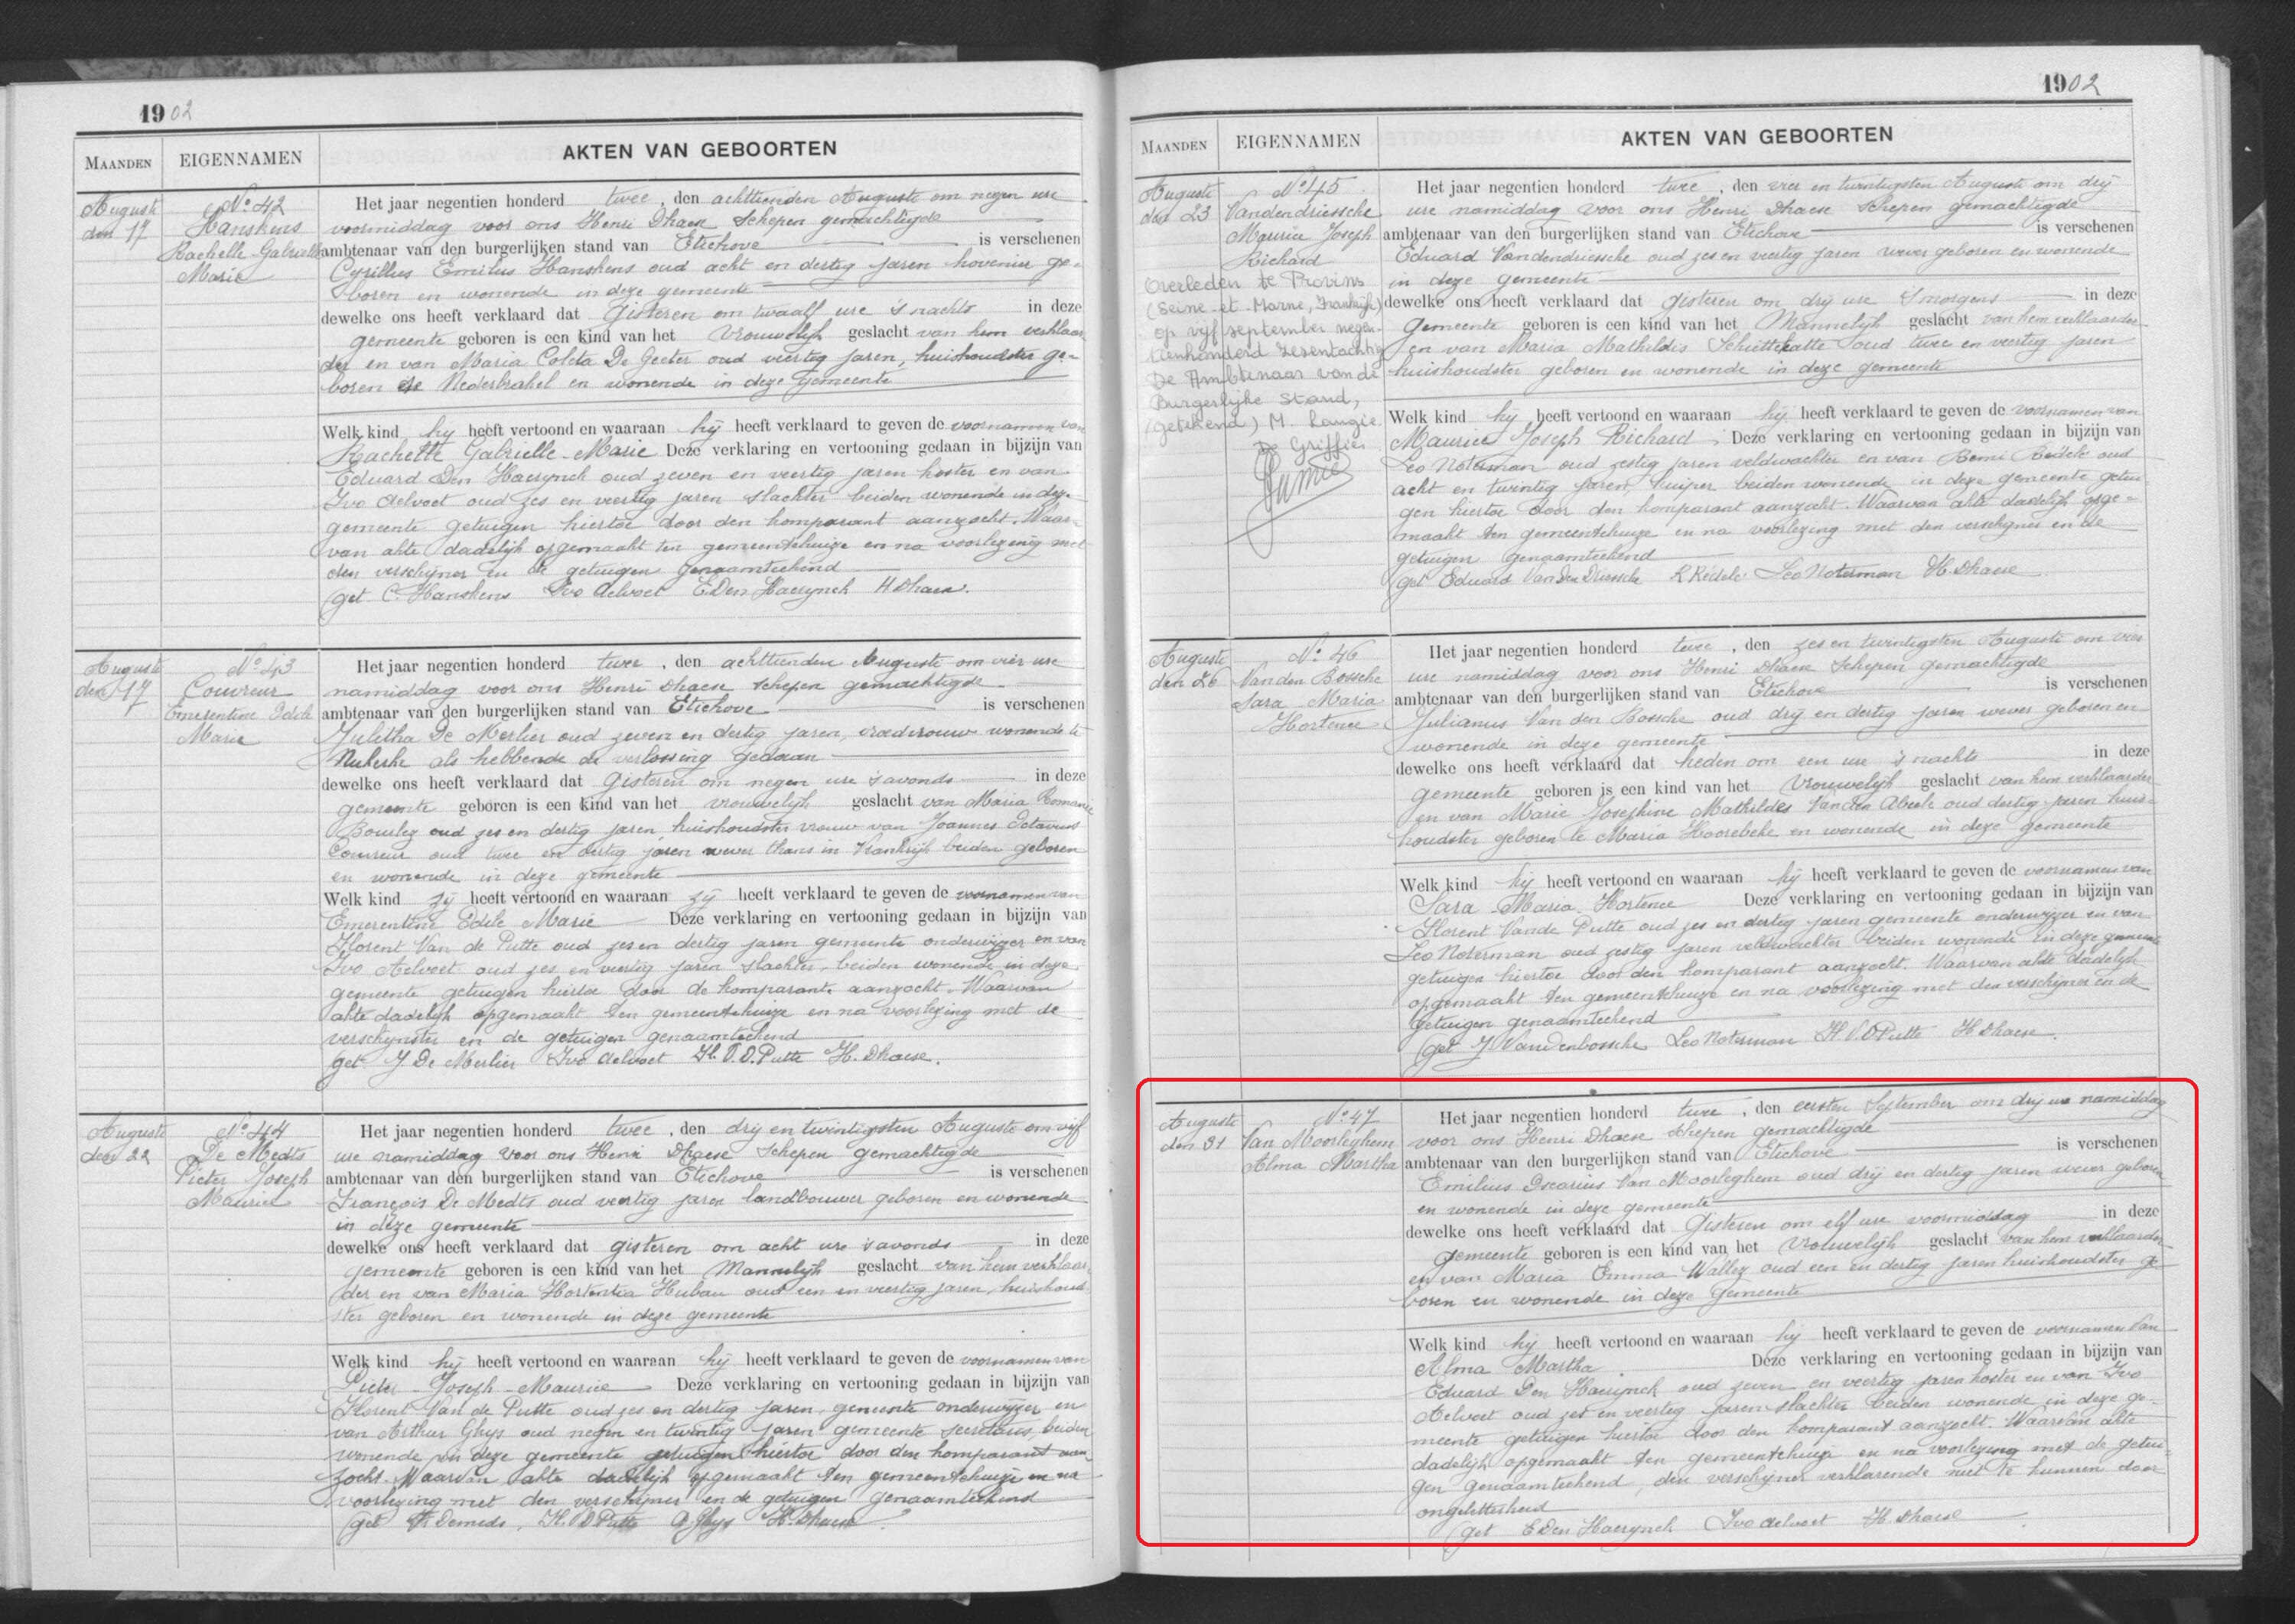 1902
MAANDEN EIGENNAMEN AKTEN VAN GEBOORTEN
Auguste den 17
No 42
Hanskens
Rachelle Gabrielle
Marie
Het jaar negentien honderd twee, den achttienden Auguste om negen ure
voormiddag voor ons Henri Dhaese Schepen gemachtigde
ambtenaar van den burgerlijken stand van Etichove is verschenen
Cyrillus Emilius Hanskens oud acht en dertig jaren hovenier ge-
boren en wonende in deze gemeente
dewelke ons heeft verklaard dat gisteren om twaalf ure 's nachts in deze
gemeente geboren is een kind van het vrouwelijk geslacht van hem verklaar-
der en van Maria Coleta De Geeter oud veertig jaren, huishoudster ge-
boren te Nederbrakel en wonende in deze gemeente
Welk kind hij heeft vertoond en waaraan hij heeft verklaard te geven de voornamen van
Rachelle Gabrielle-Marie Deze verklaring en vertooning gedaan in bijzijn van
Eduard Den Haerynck oud zeven en veertig jaren koster en van
Ivo Aelvoet oud zes en veertig jaren slachter beiden wonende in deze
gemeente getuigen hiertoe door den komparant aanzocht. Waar-
van akte dadelijk opgemaakt ten gemeentehuize en na voorlezing met
den verschijner en de getuigen genaamteekend
get C. Hanskens Ivo Aelvoet E. Den Haerynck H Dhaese.
Auguste den 17
No 43
Couvreur
Emerentine Odile
Marie
Het jaar negentien honderd twee, den achttienden Auguste om vier ure
namiddag voor ons Henri Dhaese Schepen gemachtigde
ambtenaar van den burgerlijken stand van Etichove is verschenen
Julitha De Merlier oud zeven en dertig jaren, vroedvrouw wonende te
Nukerke als hebbende de verlossing gedaan
dewelke ons heeft verklaard dat gisteren om negen ure 's avonds in deze
gemeente geboren is een kind van het vrouwelijk geslacht van Maria Romanie
Bourlez oud zes en dertig jaren, huishoudster vrouw van Joannes Octavius
Couvreur oud twee en dertig jaren wever thans in Frankrijk beiden geboren
en wonende in deze gemeente
Welk kind zij heeft vertoond en waaraan zij heeft verklaard te geven de voornamen van
Emerentine Odile Marie Deze verklaring en vertooning gedaan in bijzijn van
Florent Van de Putte oud zes en dertig jaren gemeente onderwijzer en van
Ivo Aelvoet oud zes en veertig jaren slachter, beiden wonende in deze
gemeente getuigen hiertoe door de komparante aanzocht. Waarvan
akte dadelijk opgemaakt ten gemeentehuize en na voorlezing met de
verschijnster en de getuigen genaamteekend
get. J De Merlier Ivo Aelvoet Fl. V. D. Putte H. Dhaese.
Auguste den 22
No 44
De Medts
Pieter Joseph
Maurice
Het jaar negentien honderd twee, den drij en twintigsten Auguste om vijf
ure namiddag voor ons Henri Dhaese Schepen gemachtigde
ambtenaar van den burgerlijken stand van Etichove is verschenen
François De Medts oud veertig jaren landbouwer geboren en wonende
in deze gemeente
dewelke ons heeft verklaard dat gisteren om acht ure 's avonds in deze
gemeente geboren is een kind van het Mannelijk geslacht van hem verklaar-
der en van Maria Hortentia Hubau oud een en veertig jaren, huishoud-
ster geboren en wonende in deze gemeente
Welk kind hij heeft vertoond en waaraan hij heeft verklaard te geven de voornamen van
Pieter-Joseph-Maurice Deze verklaring en vertooning gedaan in bijzijn van
Florent Van de Putte oud zes en dertig jaren, gemeente onderwijzer en
van Arthur Ghys oud negen en twintig jaren gemeente secretaris, beiden
wonende in deze gemeente getuigen hiertoe door den komparant aan-
zocht. Waarvan akte dadelijk opgemaakt ten gemeentehuize en na
voorlezing met den verschijner en de getuigen genaamteekend
get F. Demeds, Fl. V D Putte A. Ghys H. Dhaese.
1902
MAANDEN EIGENNAMEN AKTEN VAN GEBOORTEN
Auguste den 23
No 45
Vandendriessche
Maurice Joseph
Richard
Overleden te Provins
(Seine-et-Marne, Frankrijk)
op vijf september negen-
tienhonderd zesentachtig
De Ambtenaar van de
Burgerlijke Stand,
(getekend) M. Langie.
De Griffier
Het jaar negentien honderd twee, den vier en twintigsten Auguste om drij
ure namiddag voor ons Henri Dhaese Schepen gemachtigde
ambtenaar van den burgerlijken stand van Etichove is verschenen
Eduard Vandendriessche oud zes en veertig jaren wever geboren en wonende
in deze gemeente
dewelke ons heeft verklaard dat gisteren om drij ure 's morgens in deze
gemeente geboren is een kind van het Mannelijk geslacht van hem verklaarder
en van Maria Mathildis Schittekatte oud twee en veertig jaren
huishoudster geboren en wonende in deze gemeente
Welk kind hij heeft vertoond en waaraan hij heeft verklaard te geven de voornamen van
Maurice Joseph Richard. Deze verklaring en vertooning gedaan in bijzijn van
Leo Noterman oud zestig jaren veldwachter en van Remi Redelé oud
acht en twintig jaren, kuiper beiden wonende in deze gemeente getui-
gen hiertoe door den komparant aanzocht. Waarvan akte dadelijk opge-
maakt ten gemeentehuize en na voorlezing met den verschijner en de
getuigen genaamteekend
get Eduard Van Den Driessche R Redelé Leo Noterman H. Dhaese
Auguste den 26
No 46
Van den Bossche
Sara Maria
Hortence
Het jaar negentien honderd twee, den zes en twintigsten Auguste om vier
ure namiddag voor ons Henri Dhaese Schepen gemachtigde
ambtenaar van den burgerlijken stand van Etichove is verschenen
Julianus Van den Bossche oud drij en dertig jaren wever geboren en
wonende in deze gemeente
dewelke ons heeft verklaard dat heden om een ure 's nachts in deze
gemeente geboren is een kind van het Vrouwelijk geslacht van hem verklaarder
en van Marie Josephine Mathildes Van den Abeele oud dertig jaren huis-
houdster geboren te Maria Hoorebeke en wonende in deze gemeente
Welk kind hij heeft vertoond en waaraan hij heeft verklaard te geven de voornamen van
Sara-Maria-Hortence Deze verklaring en vertooning gedaan in bijzijn van
Florent Vande Putte oud zes en dertig jaren gemeente onderwijzer en van
Leo Noterman oud zestig jaren veldwachter beiden wonende in deze gemeente
getuigen hiertoe door den komparant aanzocht. Waarvan akte dadelijk
opgemaakt ten gemeentehuize en na voorlezing met den verschijner en de
getuigen genaamteekend
get J. Vandenbossche Leo Noterman Fl. V. D Putte H Dhaese.
Auguste den 31
No 47
Van Moorleghem
Alma Martha
Het jaar negentien honderd twee, den eersten September om drij ure namiddag
voor ons Henri Dhaese Schepen gemachtigde
ambtenaar van den burgerlijken stand van Etichove is verschenen
Emilius Oscarius Van Moorleghem oud drij en dertig jaren wever geboren
en wonende in deze gemeente
dewelke ons heeft verklaard dat Gisteren om elf ure voormiddag in deze
gemeente geboren is een kind van het Vrouwelijk geslacht van hem verklaarder
en van Maria Emma Wallez oud een en dertig jaren huishoudster ge-
boren en wonende in deze gemeente
Welk kind hij heeft vertoond en waaraan hij heeft verklaard te geven de voornamen van
Alma Martha Deze verklaring en vertooning gedaan in bijzijn van
Eduard Den Haerynck oud zeven en veertig jaren koster en van Ivo
Aelvoet oud zes en veertig jaren slachter beiden wonende in deze ge-
meente getuigen hiertoe door den komparant aanzocht. Waarvan akte
dadelijk opgemaakt ten gemeentehuize en na voorlezing met de getui-
gen genaamteekend, den verschijner verklarende niet te kunnen door
ongeletterheid
get E Den Haerynck Ivo Aelvoet H. Dhaese